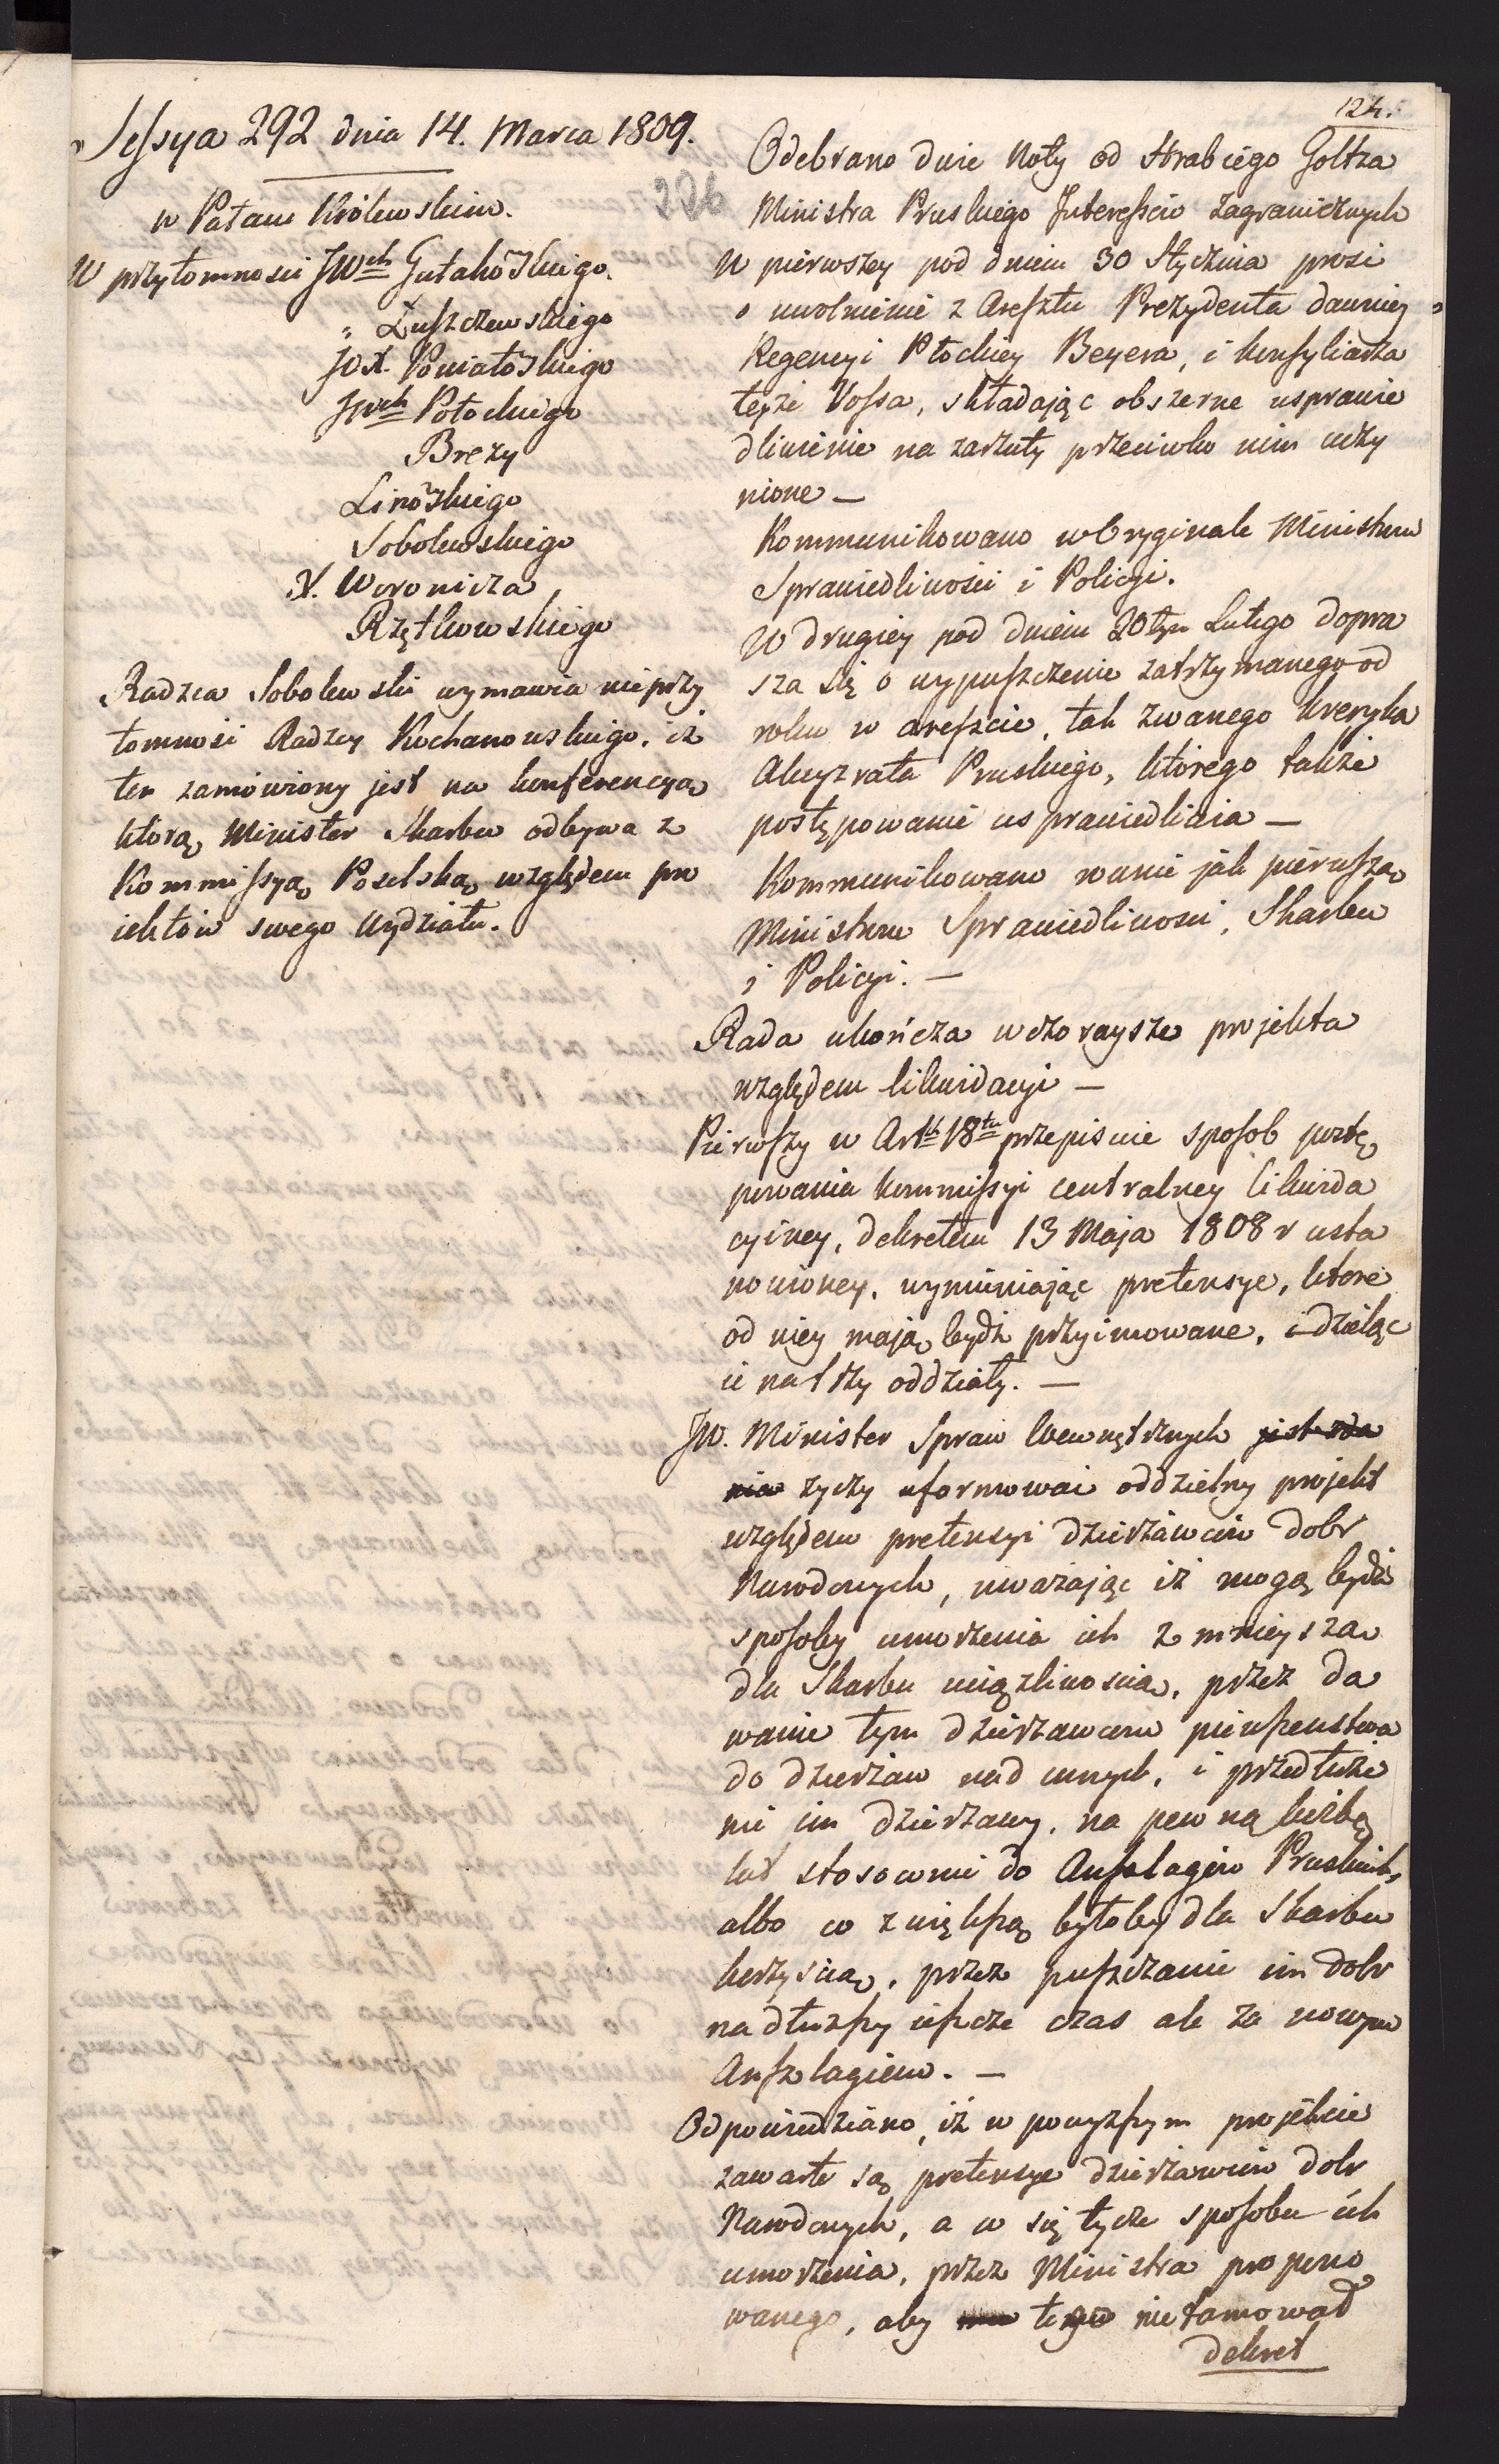 Sessya 292 dnia 14. Marca 1809.
w Pałacu Królewskim.
W przytomności JWch Gutakowskiego.
„ Łuszczewskiego
JOX. Poniatowskiego
JWch Potockiego
Brezy
Linowskiego
Sobolewskiego
X. Woronicza
Rzętkowskiego
Radzca Sobolewski wymawia nieprzy
tomność Radzcy Kochanowskiego, iż
ten zamówiony jest na konferencyą
którą Minister Skarbu odbywa z
Kommissyą Poselską względem pro
iektów swego Wydziału.
124.
226
Odebrano dwie Noty od Hrabiego Goltza
Ministra Pruskiego Interessów Zagranicznych
W pierwszey pod dniem 30 Stycznia prosi
o uwolnienie z Aresztu Prezydenta dawniey
Regencyi Płockiey Beyera, i konsyliarza
teyże Vossa, składając obszerne usprawie
dliwienie na zarzuty przeciwko nim uczy
nione —
Kommunikowano w Oryginale Ministrom
Sprawiedliwości i Policyi.
W drugiey pod dniem 20tym Lutego dopra
sza się o wypuszczenie zatrzymanego od
roku w areszcie, tak zwanego Kveryka
Akcyzrata Pruskiego, którego także
postępowanie usprawiedliwia —
Kommunikowano równie jak pierwszą
Ministrom Sprawiedliwości, Skarbu
i Policyi. —
Rada ukończa wczoraysze projekta
względem likwidacyi —
Pierwszy w Artch 18tu przepisuie sposob postę
powania kommissyi centralney likwida
cyiney, dekretem 13 Maja 1808 r usta
nowioney, wymieniając pretensye, które
od niey mają bydź przyimowane, i dzieląc
ie na trzy oddziały. —
JW. Minister Spraw Wewnętrznych jest zda
nia życzy uformować oddzielny projekt
względem pretensyi dzierżawców dobr
Narodowych, uważając iż mogą bydź
sposoby umorzenia ich z mnieyszą
dla Skarbu uciążliwością, przez da
wanie tym dzierżawcom pierwszeństwa
do dzierżaw nad innych, i przedłuże
nie im dzierżawy, na pewną liczbę
lat stosownie do Anszlagów Pruskich,
albo co z większą byłoby dla Skarbu
korzyścią, przez puszczanie im dobr
na dłuższy ieszcze czas ale za nowym
Anszlagiem. —
Odpowiedziano, iż w powyższym projekcie
zawarte są pretensye dzierżawców dobr
Narodowych, a co się tycze sposobu ich
umorzenia, przez Ministra propono
wanego, aby tego nie tamował
dekret